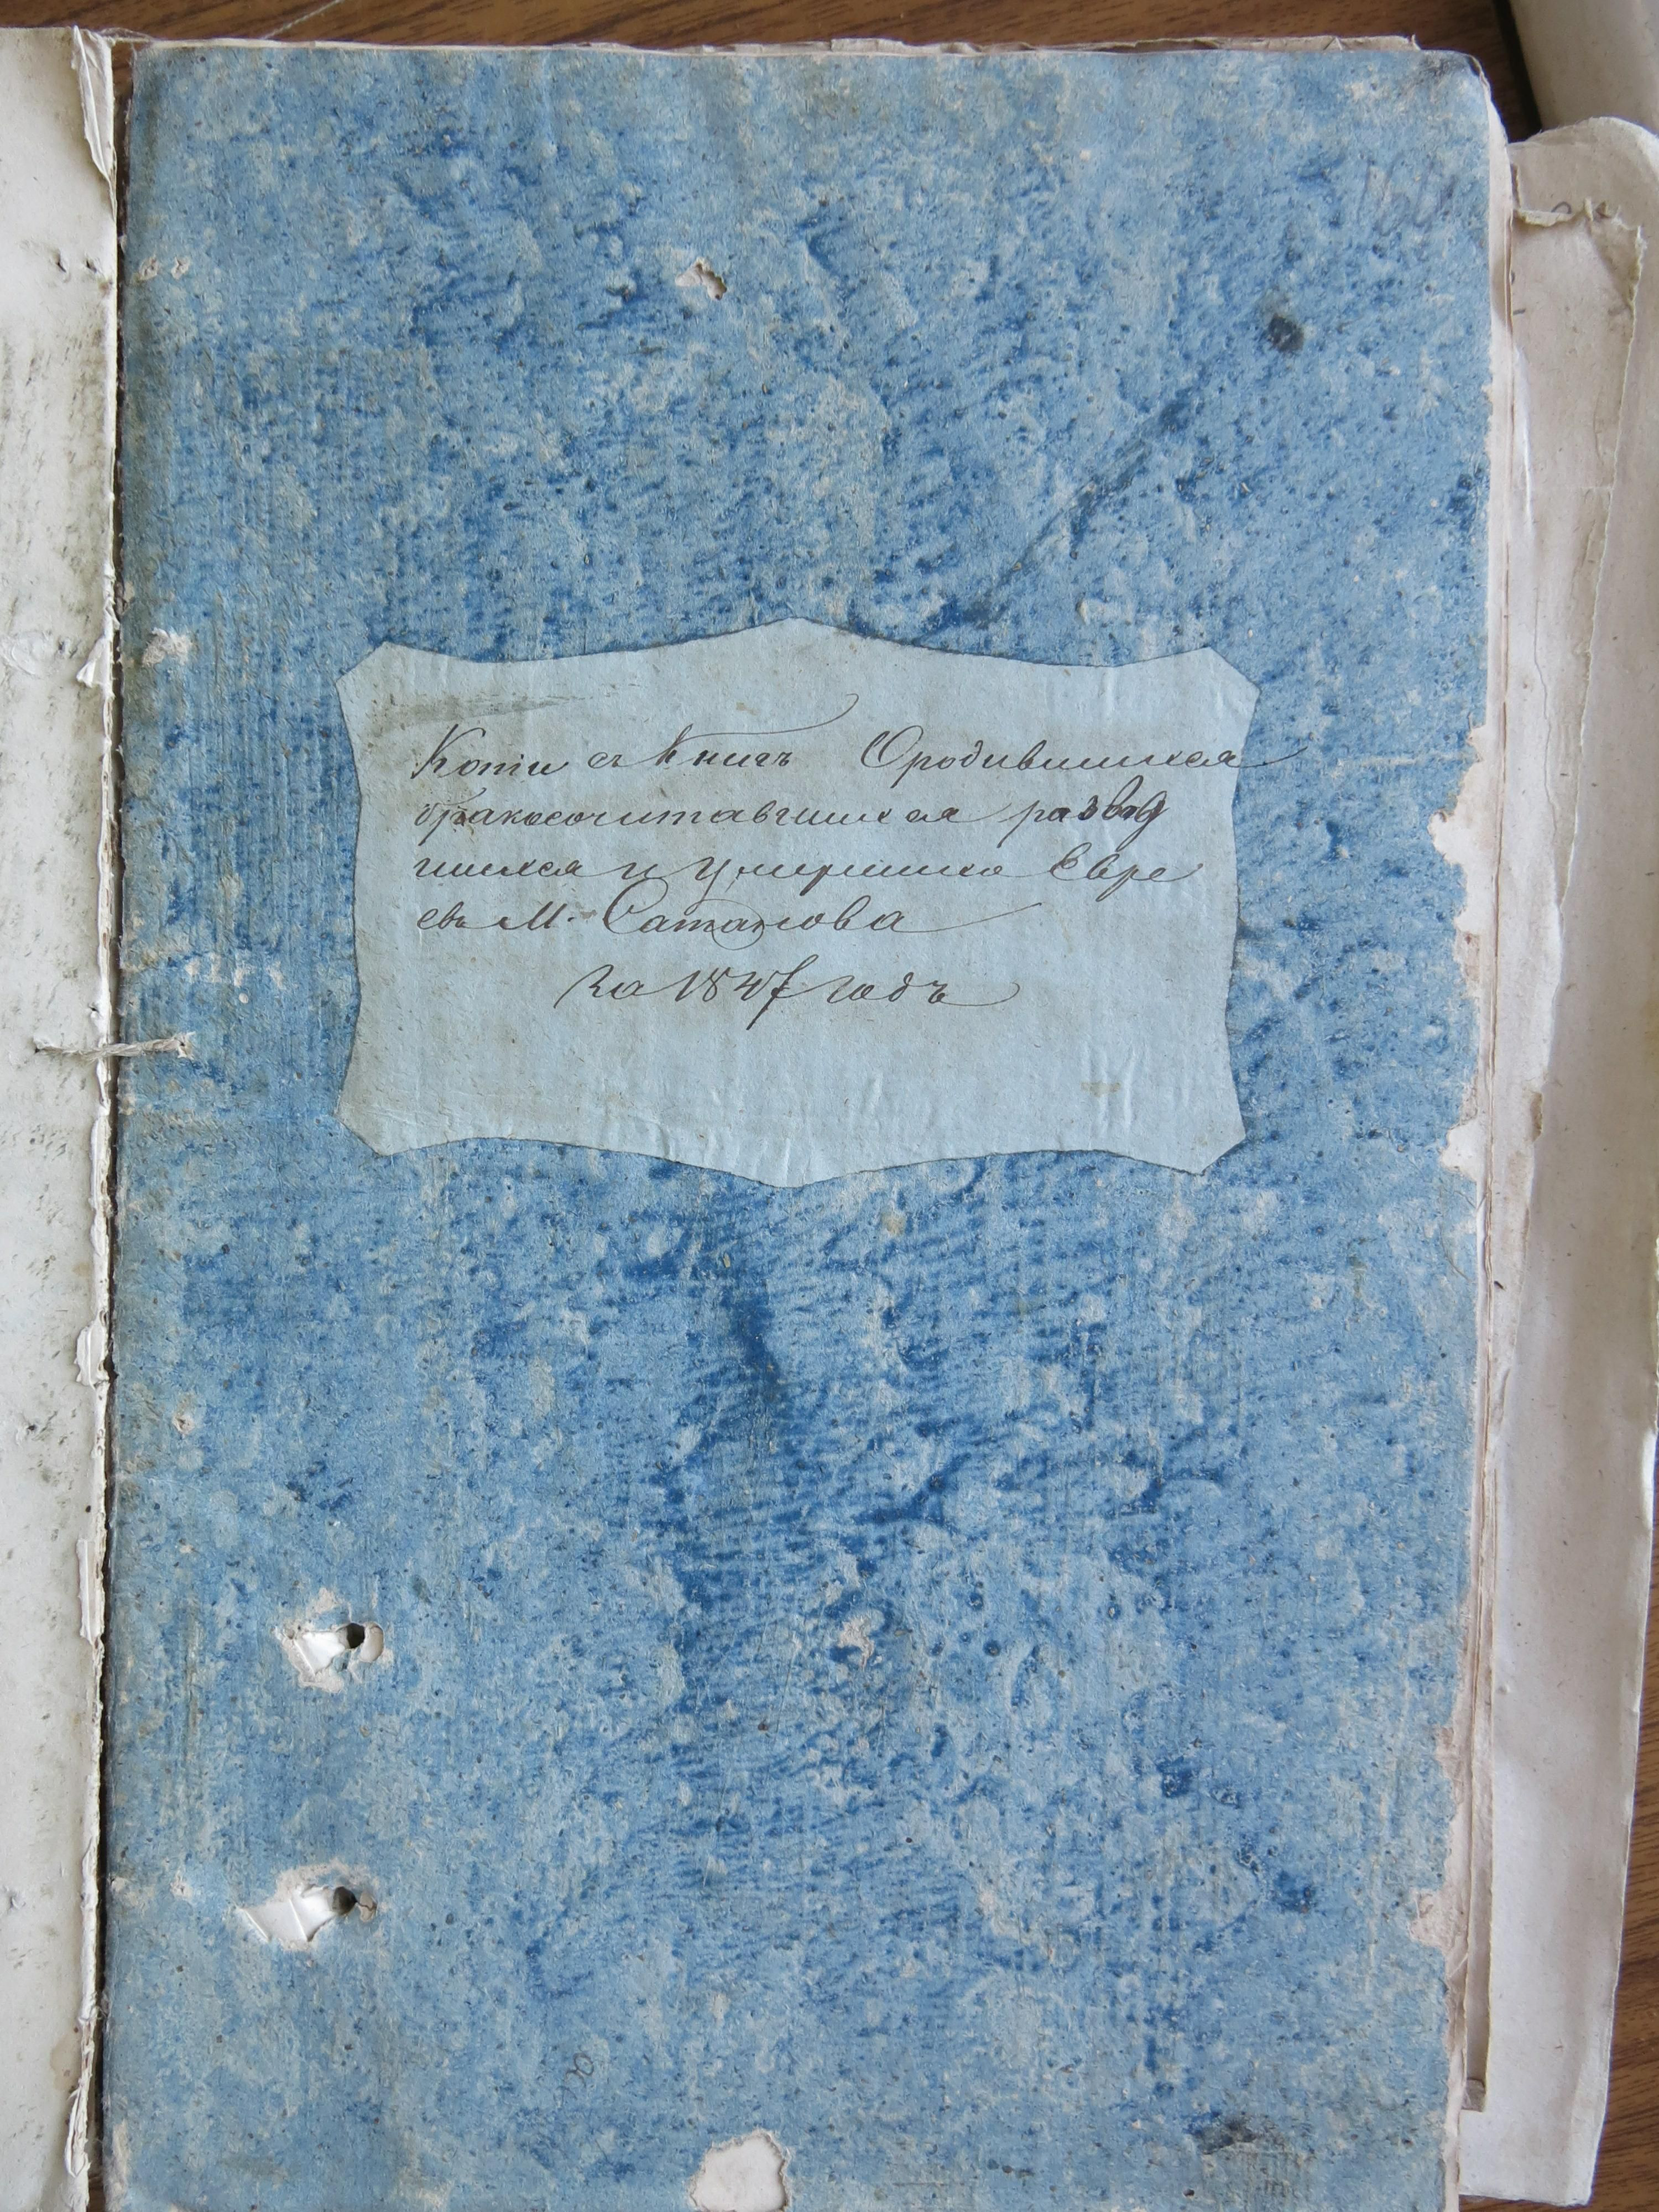 Копіи съ Книгъ Ородившихся
бракосочитавшихся развод
шихся и Умершихъ Евре
евъ М. Сатанова
За 1847 годъ